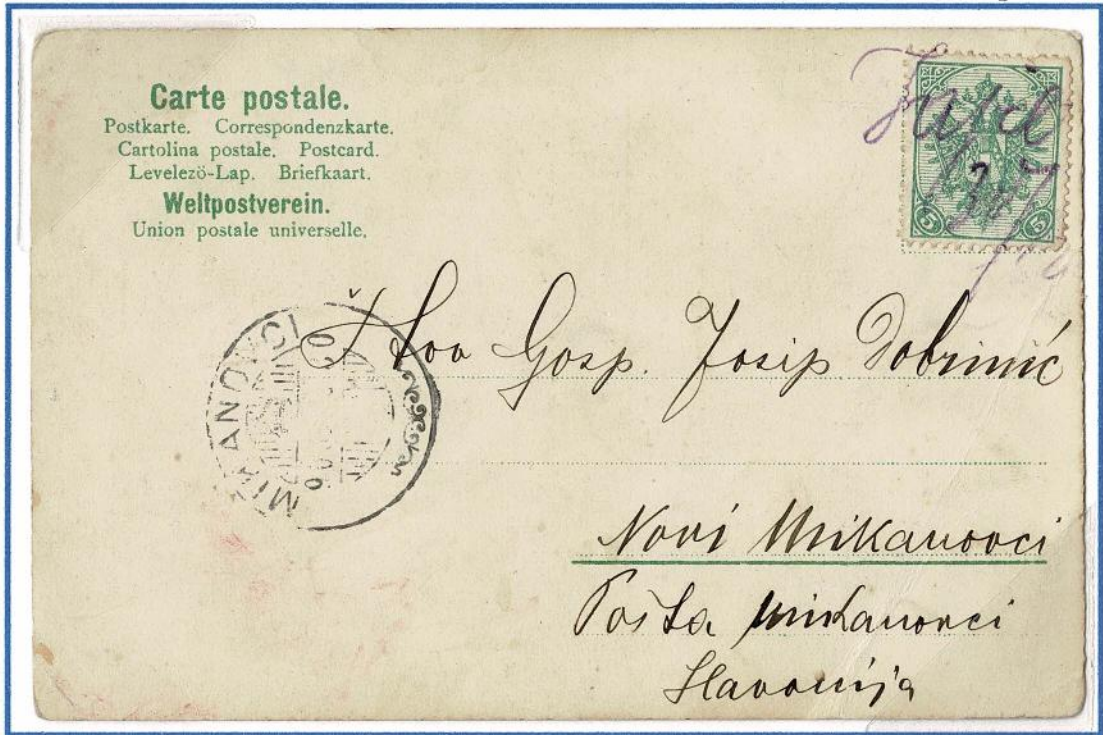 Carte postale.
Postkarte. Correspondenzkarte.
Cartolina postale. Postcard.
Levelező-Lap. Briefkaart.
Weltpostverein.
Union postale universelle.
5 5
MIKANOVCI
Gosp. Josip Dobrinić
Novi Mikanovci
Pošta Mikanovci
Slavonija